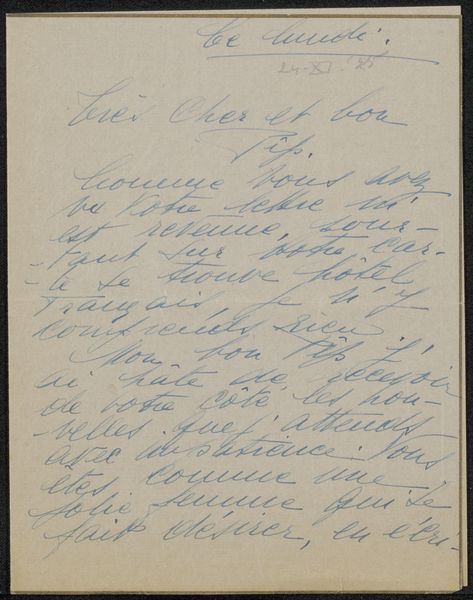 Ce lundi.
24-XI-'25
Très Cher et bon
Pip.
Comme vous avez
vu votre lettre m'
est revenue, pour-
tant sur votre car-
-te se trouve hôtel
Français, je n'y
comprends rien
Mon bon Pip j'
ai hâte de recevoir
de votre côté les nou-
-velles que j'attends
avec impatience. Vous
êtes comme une
jolie femme qui se
fait désirer, en l'écri-